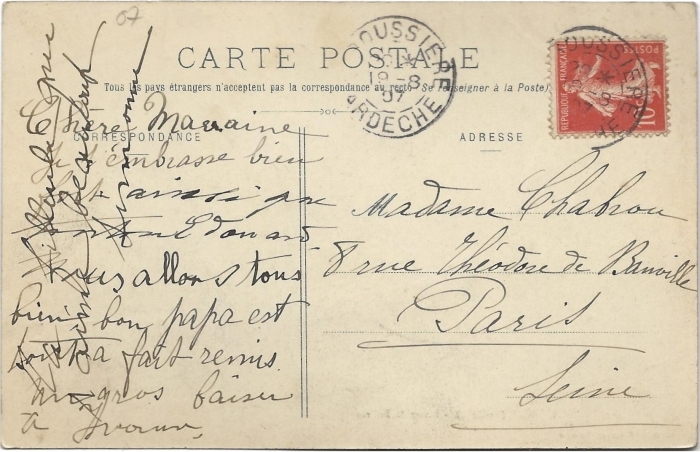 07
CARTE POSTALE
Tous les pays étrangers n'acceptent pas la correspondance au recto (Se renseigner à la Poste)
CORRESPONDANCE
ADRESSE
BOUSSIERE
18 -8
07
ARDECHE
REPUBLIQUE FRANÇAISE
10
Chère Marraine
Je t'embrasse bien
fort ainsi que
tonton Edouard
nous allons tous
bien bon papa est
tout à fait remis
un gros baiser
à Yvonne
Madame Chabrou
8 rue Théodore de Banville
Paris
Seine